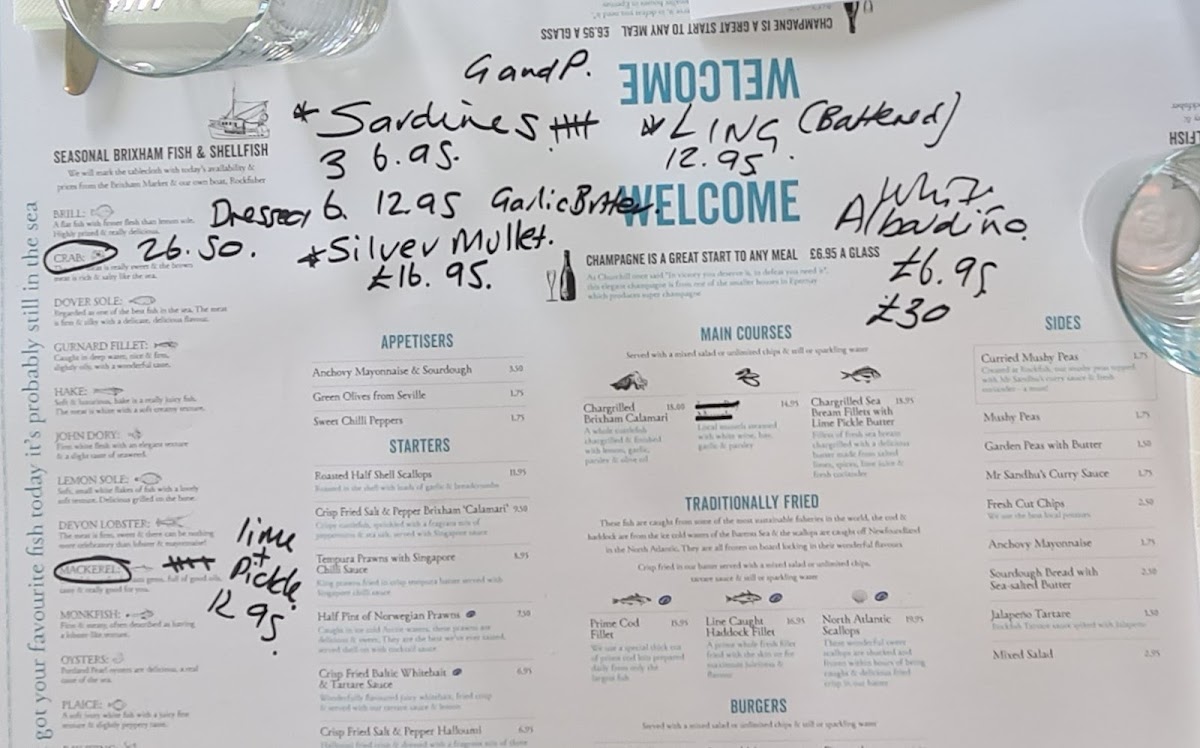 CHAMPAGNE IS A GREAT START TO ANY MEAL £6.95 A GLASS
WELCOME
G and P.
* Sardines
3 6.95.
6. 12.95 Garlic Butter.
* LING (Battered)
12.95.
SEASONAL BRIXHAM FISH & SHELLFISH
We will mark the tablecloth with today's availability &
prices from the Brixham Market & our own boat, Rockfisher
got your favourite fish today it's probably still in the sea
BRILL:
A flat fish with firmer flesh than lemon sole.
Highly prized & really delicious.
CRAB:
Dressed
26.50.
meat is rich & salty like the sea.
* Silver Mullet.
£16.95.
WELCOME
White
Albariño
£6.95
£30
CHAMPAGNE IS A GREAT START TO ANY MEAL £6.95 A GLASS
As Churchill once said "In victory you deserve it, in defeat you need it",
this elegant champagne is from one of the smaller houses in Epernay
which produces super champagne
DOVER SOLE:
Regarded as one of the best fish in the sea. The meat
is firm & silky with a delicate, delicious flavour.
GURNARD FILLET:
Caught in deep water, nice & firm,
slightly oily, with a wonderful taste.
HAKE:
Soft & luxurious, hake is a really juicy fish.
The meat is white with a soft creamy texture.
JOHN DORY:
Fine white flesh with an elegant texture
& a slight taste of seaweed.
LEMON SOLE:
Soft, small white flakes of fish with a lovely
soft texture. Delicious grilled on the bone.
DEVON LOBSTER:
The meat is firm, sweet & there can be nothing
more celebratory than lobster & mayonnaise!
MACKEREL:
full of good oils,
tasty & really good for you.
lime
+
Pickle
12.95.
MONKFISH:
Firm & meaty, often described as having
a lobster-like texture.
OYSTERS:
Portland Pearl oysters are delicious, a real
taste of the sea.
PLAICE:
A soft ivory white fish with a juicy fine
texture & slightly peppery taste.
APPETISERS
Anchovy Mayonnaise & Sourdough 3.50
Green Olives from Seville 1.75
Sweet Chilli Peppers 1.75
STARTERS
Roasted Half Shell Scallops 11.95
Roasted in the shell with loads of garlic & breadcrumbs
Crisp Fried Salt & Pepper Brixham 'Calamari' 9.50
Crispy cuttlefish, sprinkled with a fragrant mix of
peppercorns & sea salt, served with Singapore sauce
Tempura Prawns with Singapore
Chilli Sauce 8.95
King prawns fried in crisp tempura batter served with
Singapore chilli sauce
Half Pint of Norwegian Prawns 7.50
Caught in ice cold Arctic waters, these prawns are
delicious & sweet. They are the best we've ever tasted,
served shell on with cocktail sauce
Crisp Fried Baltic Whitebait
& Tartare Sauce 6.95
Wonderfully flavoured juicy whitebait, fried crisp
& served with our tartare sauce & lemon
Crisp Fried Salt & Pepper Halloumi 6.95
MAIN COURSES
Served with a mixed salad or unlimited chips & still or sparkling water
Chargrilled 18.00
Brixham Calamari
A whole cuttlefish
chargrilled & finished
with lemon, garlic,
parsley & olive oil
14.95
Local mussels steamed
with white wine, bay,
garlic & parsley
Chargrilled Sea 18.95
Bream Fillets with
Lime Pickle Butter
Fillets of fresh sea bream
chargrilled with a delicious
butter made from salted
limes, spices, lime juice &
fresh coriander
TRADITIONALLY FRIED
These fish are caught from some of the most sustainable fisheries in the world, the cod &
haddock are from the ice cold waters of the Barents Sea & the scallops are caught off Newfoundland
in the North Atlantic. They are all frozen on board locking in their wonderful flavours
Crisp fried in our batter served with a mixed salad or unlimited chips,
tartare sauce & still or sparkling water
Prime Cod 15.95
Fillet
We use a special thick cut
of prime cod loin prepared
daily from only the
largest fish
Line Caught 16.95
Haddock Fillet
A prime whole fresh fillet
fried with the skin on for
maximum juiciness &
flavour
North Atlantic 19.95
Scallops
These wonderful sweet
scallops are shucked and
frozen within hours of being
caught & delicious fried
crisp in our batter
BURGERS
Served with a mixed salad or unlimited chips & still or sparkling water
SIDES
Curried Mushy Peas 1.75
Created at Rockfish, our mushy peas topped
with Mr Sandhu's curry sauce & fresh
coriander - a must!
Mushy Peas 1.75
Garden Peas with Butter 1.50
Mr Sandhu's Curry Sauce 1.75
Fresh Cut Chips 2.50
We use the best local potatoes
Anchovy Mayonnaise 1.75
Sourdough Bread with
Sea-salted Butter 2.50
Jalapeño Tartare 1.50
Rockfish Tartare sauce spiked with Jalapeño
Mixed Salad 2.95